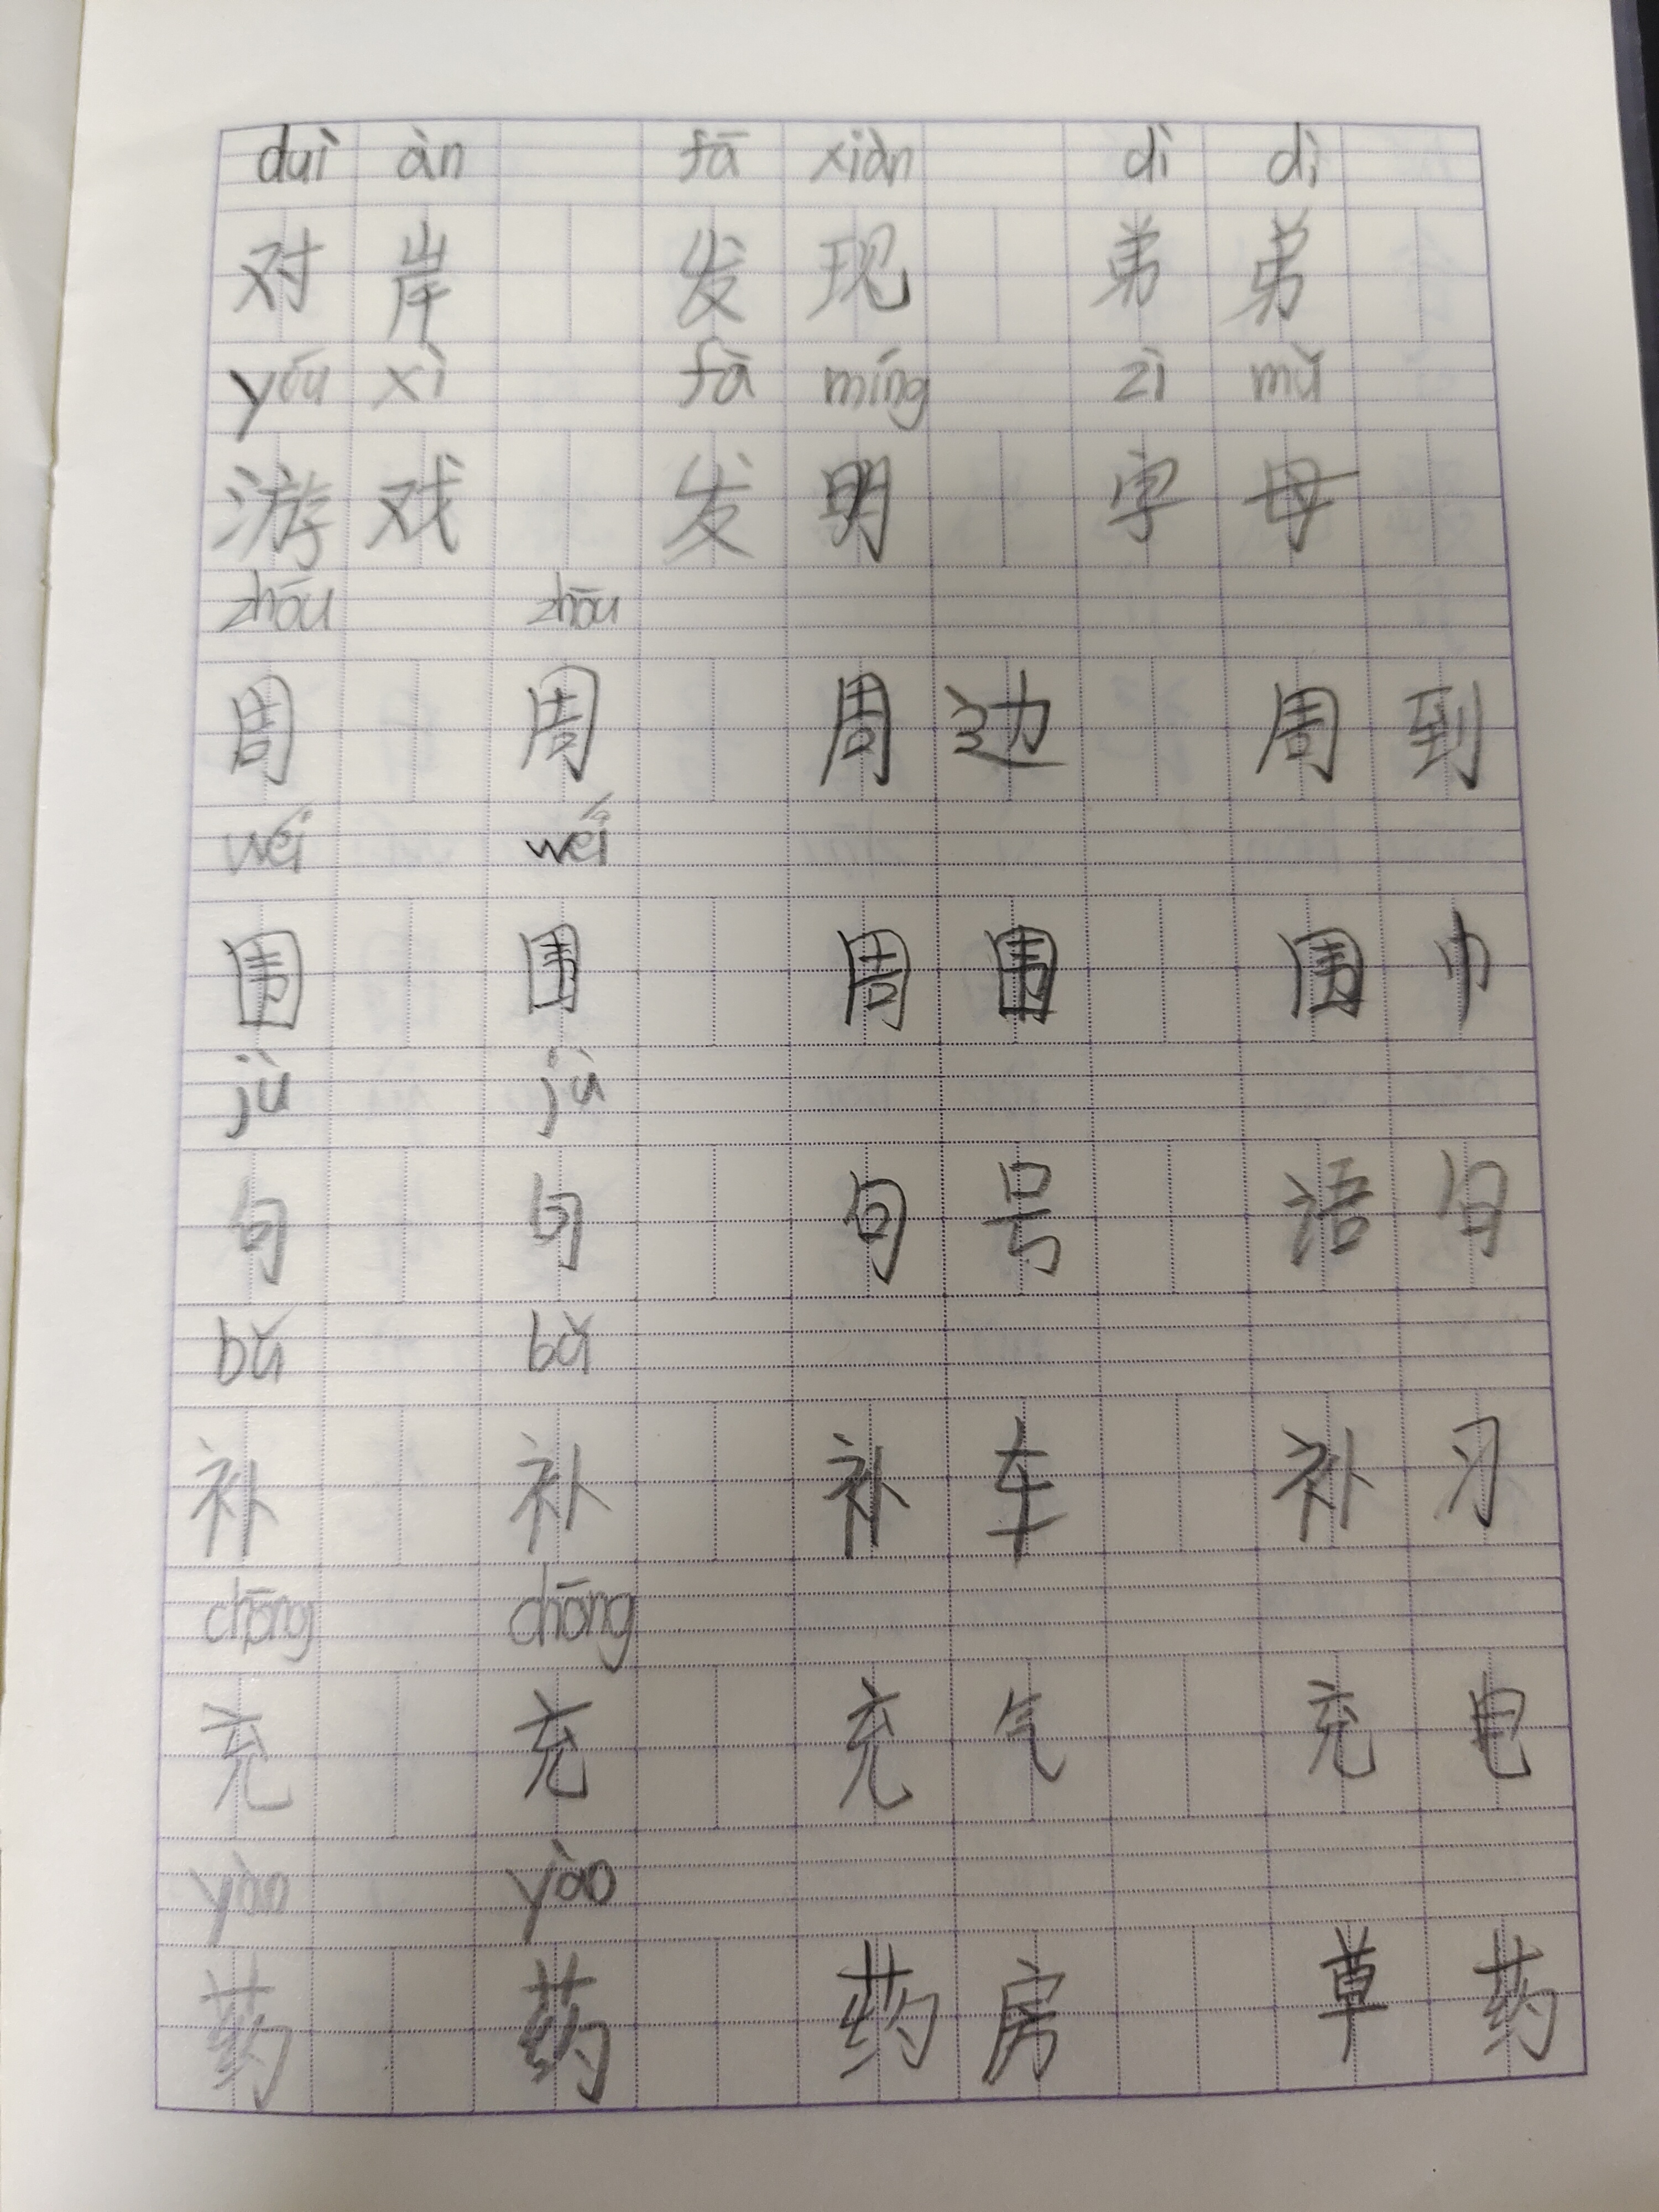 duì àn fā xiàn dì dì
对岸 发现 弟弟
yóu xì fā míng zì mǔ
游戏 发明 字母
zhōu zhōu
周 周 周边 周到
wéi wéi
围 围 周围 围巾
jù jù
句 句 句号 语句
bǔ bǔ
补 补 补车 补习
chōng chōng
充 充 充气 充电
yào yào
药 药 药房 草药